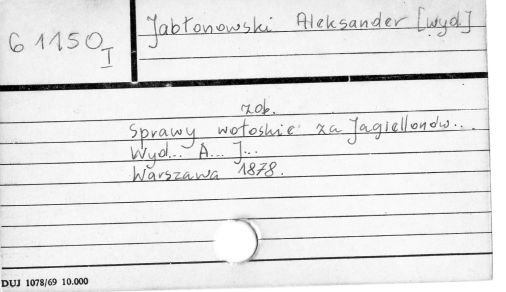 Jabłonowski Aleksander [wyd.]
61150
I
zob.
Sprawy wołoskie za Jagiellonów...
Wyd... A... J...
Warszawa 1878.
DUJ 1078/69 10.000